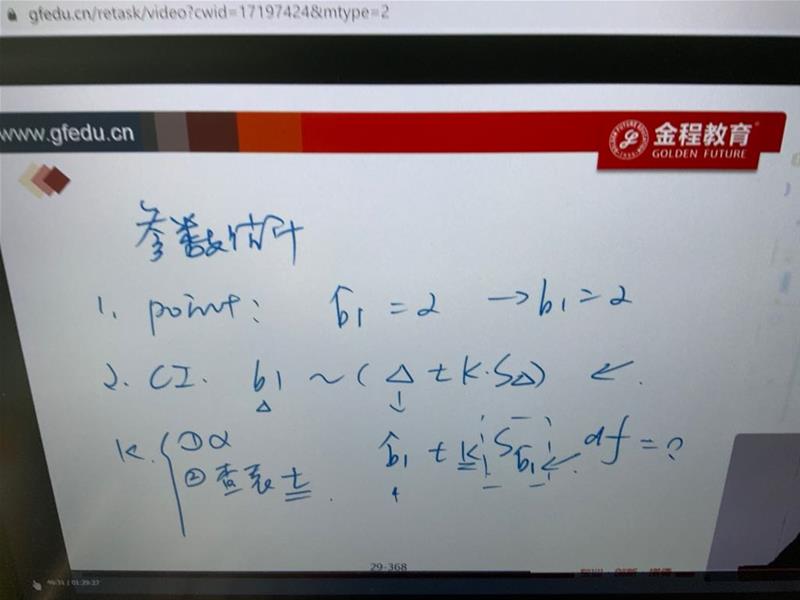 gfedu.cn/retask/video?cwid=17197424&mtype=2
www.gfedu.cn
金程教育
GOLDEN FUTURE
参数估计
1. point: b̂1 = 2 → b1 = 2
2. CI. b1 ~ (Δ ± K·SΔ) ←
K. ①α
b̂1 ± K S b̂1 ← df = ?
②查表 t
29-368